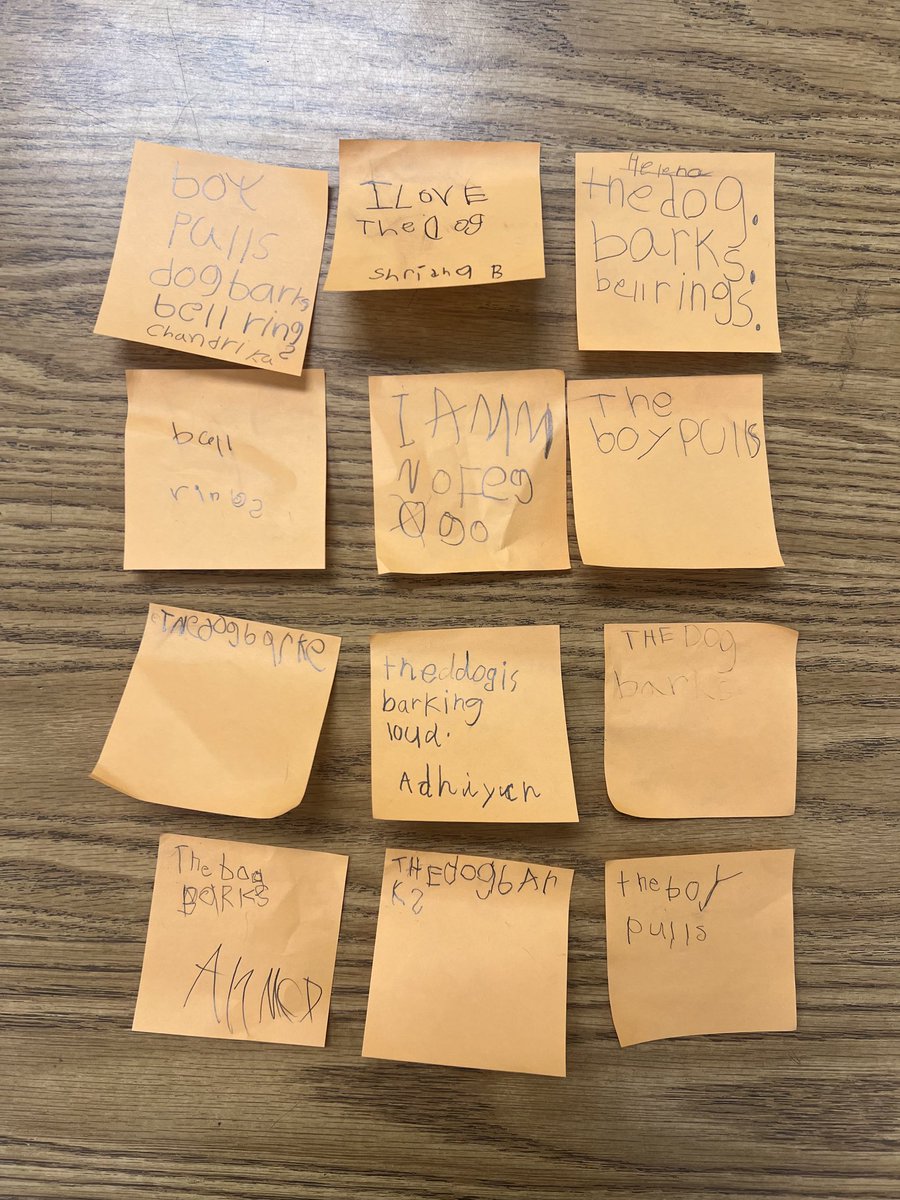 boy
pulls
dog barks
bell rings
chandrika
I LOVE
The Dog
Shriang B
Helena
the dog.
barks.
bell rings.
bell
rings
I AMM
NOFEg
go
The
boy PUlls
THedogbarke
theddogis
barking
loud.
Adhiyan
THE Dog
barks
The bog
BARKS
AhMeD
THEdogbAr
Ks
the boy
pulls